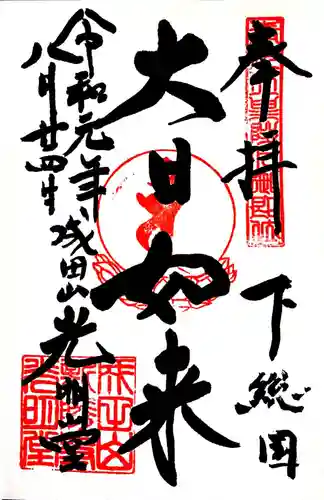 奉拝
下総国
大日如来
令和元年
八月廿四日
成田山光明堂